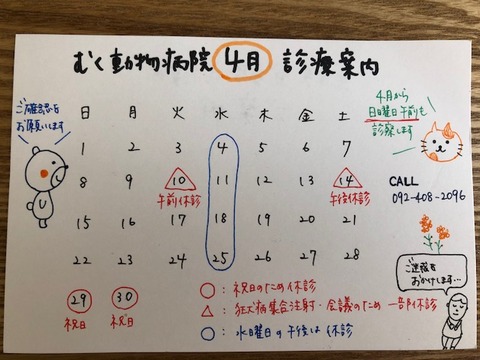 むく動物病院 4月 診療案内
ご確認を
お願いします
4月から
日曜日午前も
診察します
日 月 火 水 木 金 土
1 2 3 4 5 6 7
8 9 10 11 12 13 14
午前休診 午後休診
15 16 17 18 19 20 21
22 23 24 25 26 27 28
29 30
祝日 祝日
CALL
092-408-2096
○:祝日のため休診
△:狂犬病集合注射・会議のため一部休診
○:水曜日の午後は休診
ご迷惑を
おかけします…